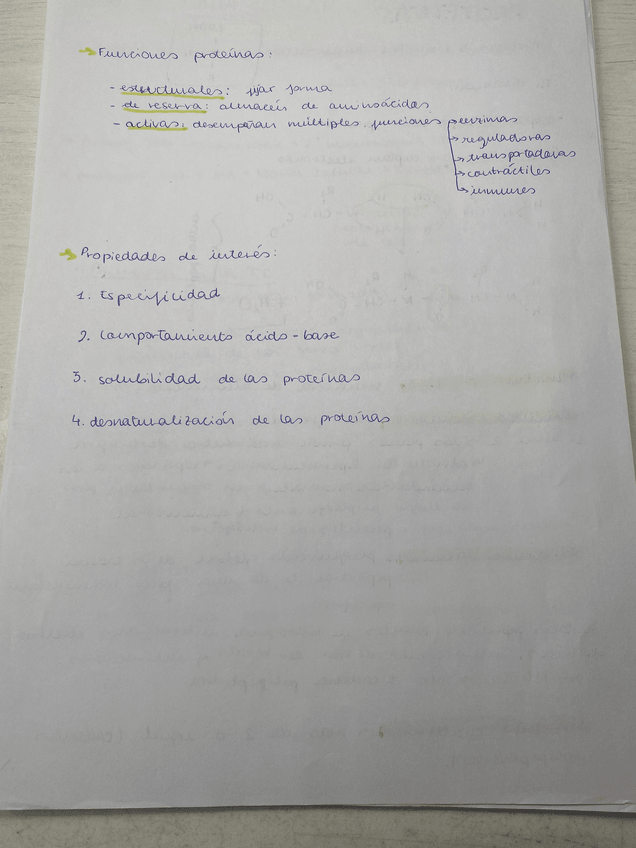 → Funciones proteínas:
- estructurales: fijar forma
- de reserva: almacén de aminoácidos
- activas: desempeñan múltiples funciones → enzimas
→ reguladoras
→ transportadoras
→ contráctiles
→ inmunes
→ Propiedades de interés:
1. Especificidad
2. Comportamiento ácido-base
3. solubilidad de las proteínas
4. desnaturalización de las proteínas